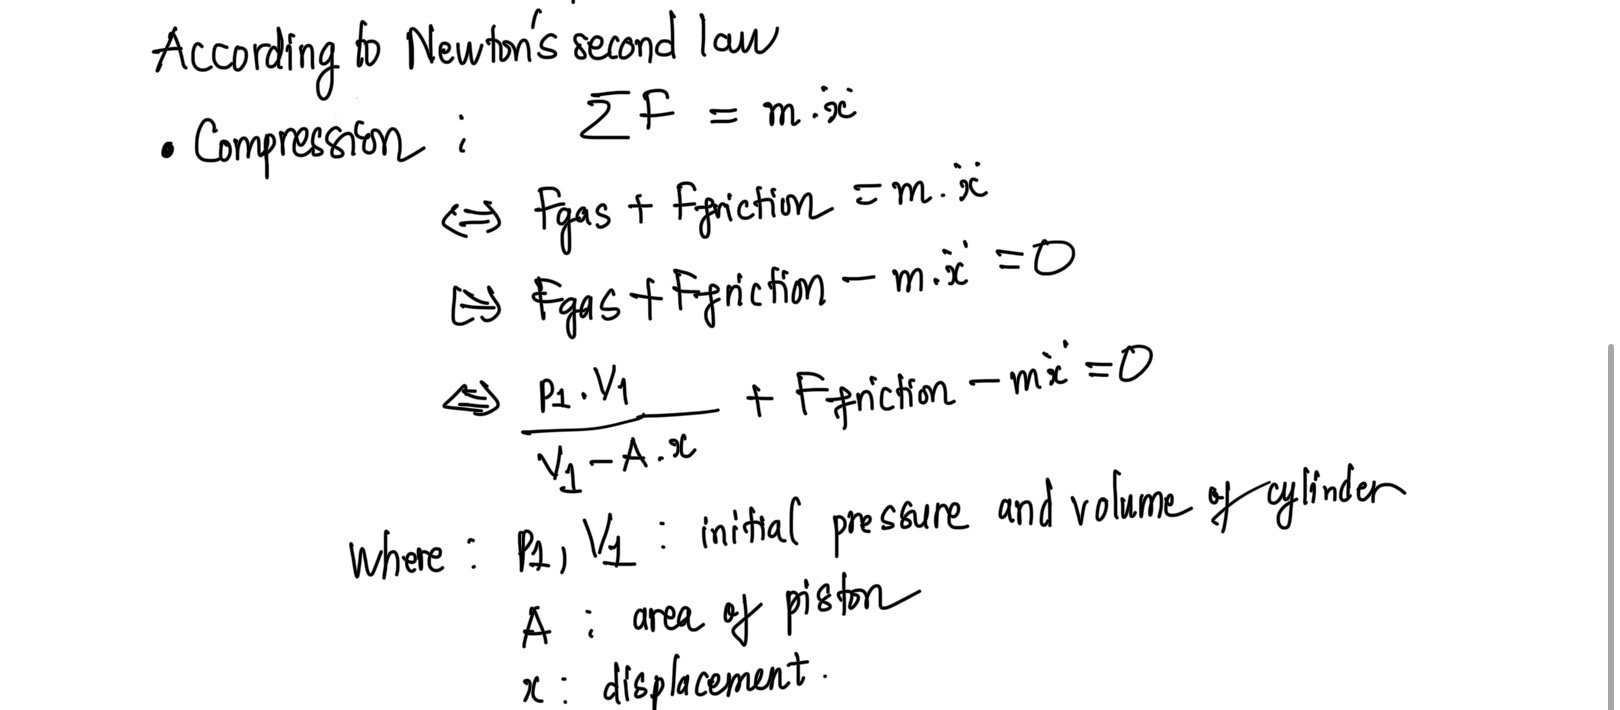 According to Newton's second law
• Compression : ΣF = m.ẍ
⇔ Fgas + Ffriction = m.ẍ
⇔ Fgas + Ffriction − m.ẍ = 0
⇔ P1.V1 / (V1 − A.x) + Ffriction − mẍ = 0
Where : P1, V1 : initial pressure and volume of cylinder
A : area of piston
x : displacement.